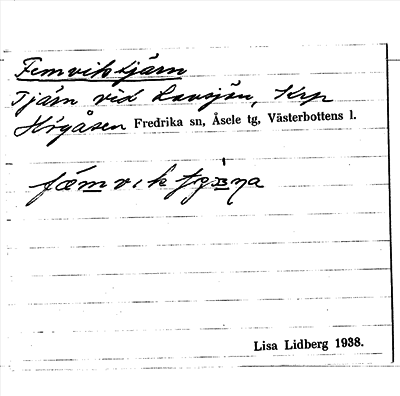 Femvikstjärn
Tjärn vid Lavsjön, Krp
Högåsen Fredrika sn, Åsele tg, Västerbottens l.
Lisa Lidberg 1938.